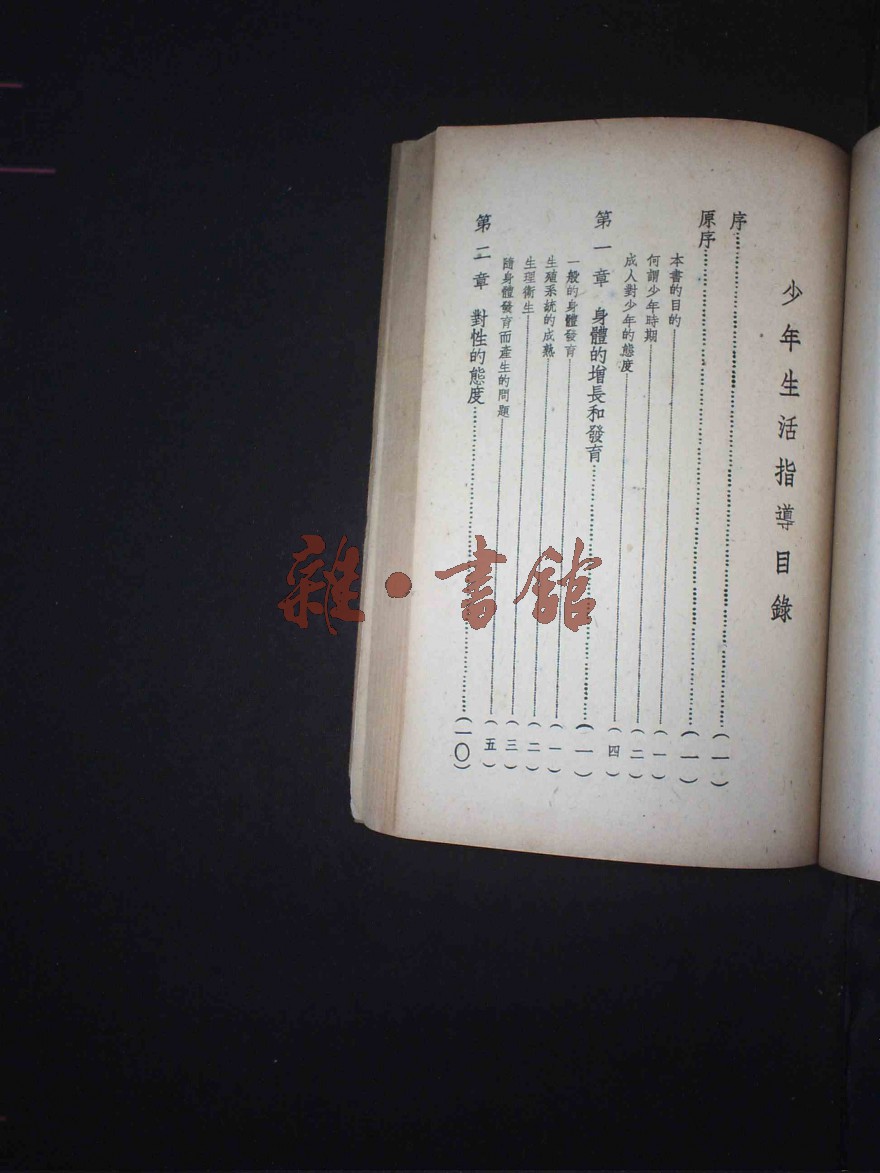 少年生活指導目錄
序……（一）
原序……（一）
本書的目的……（一）
何謂少年時期……（二）
成人對少年的態度……（四）
第一章　身體的增長和發育……（一）
一般的身體發育……（一）
生殖系統的成熟……（二）
生理衛生……（三）
隨身體發育而產生的問題……（五）
第二章　對性的態度……（一〇）
雜・書館